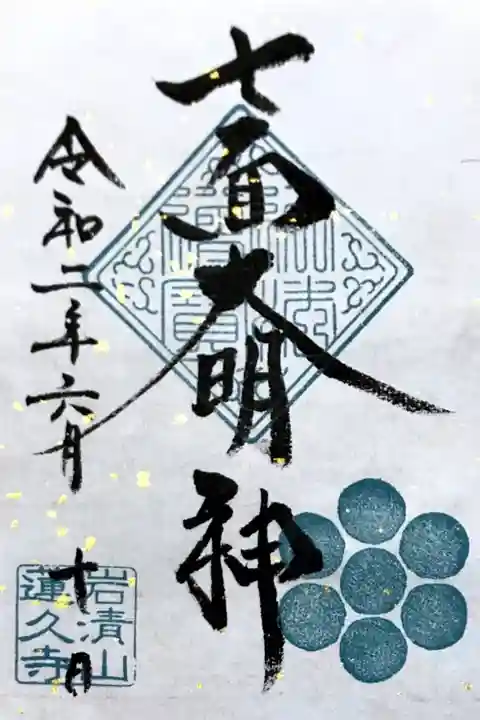 七面大明神
令和二年六月
十日
岩清山
蓮久寺